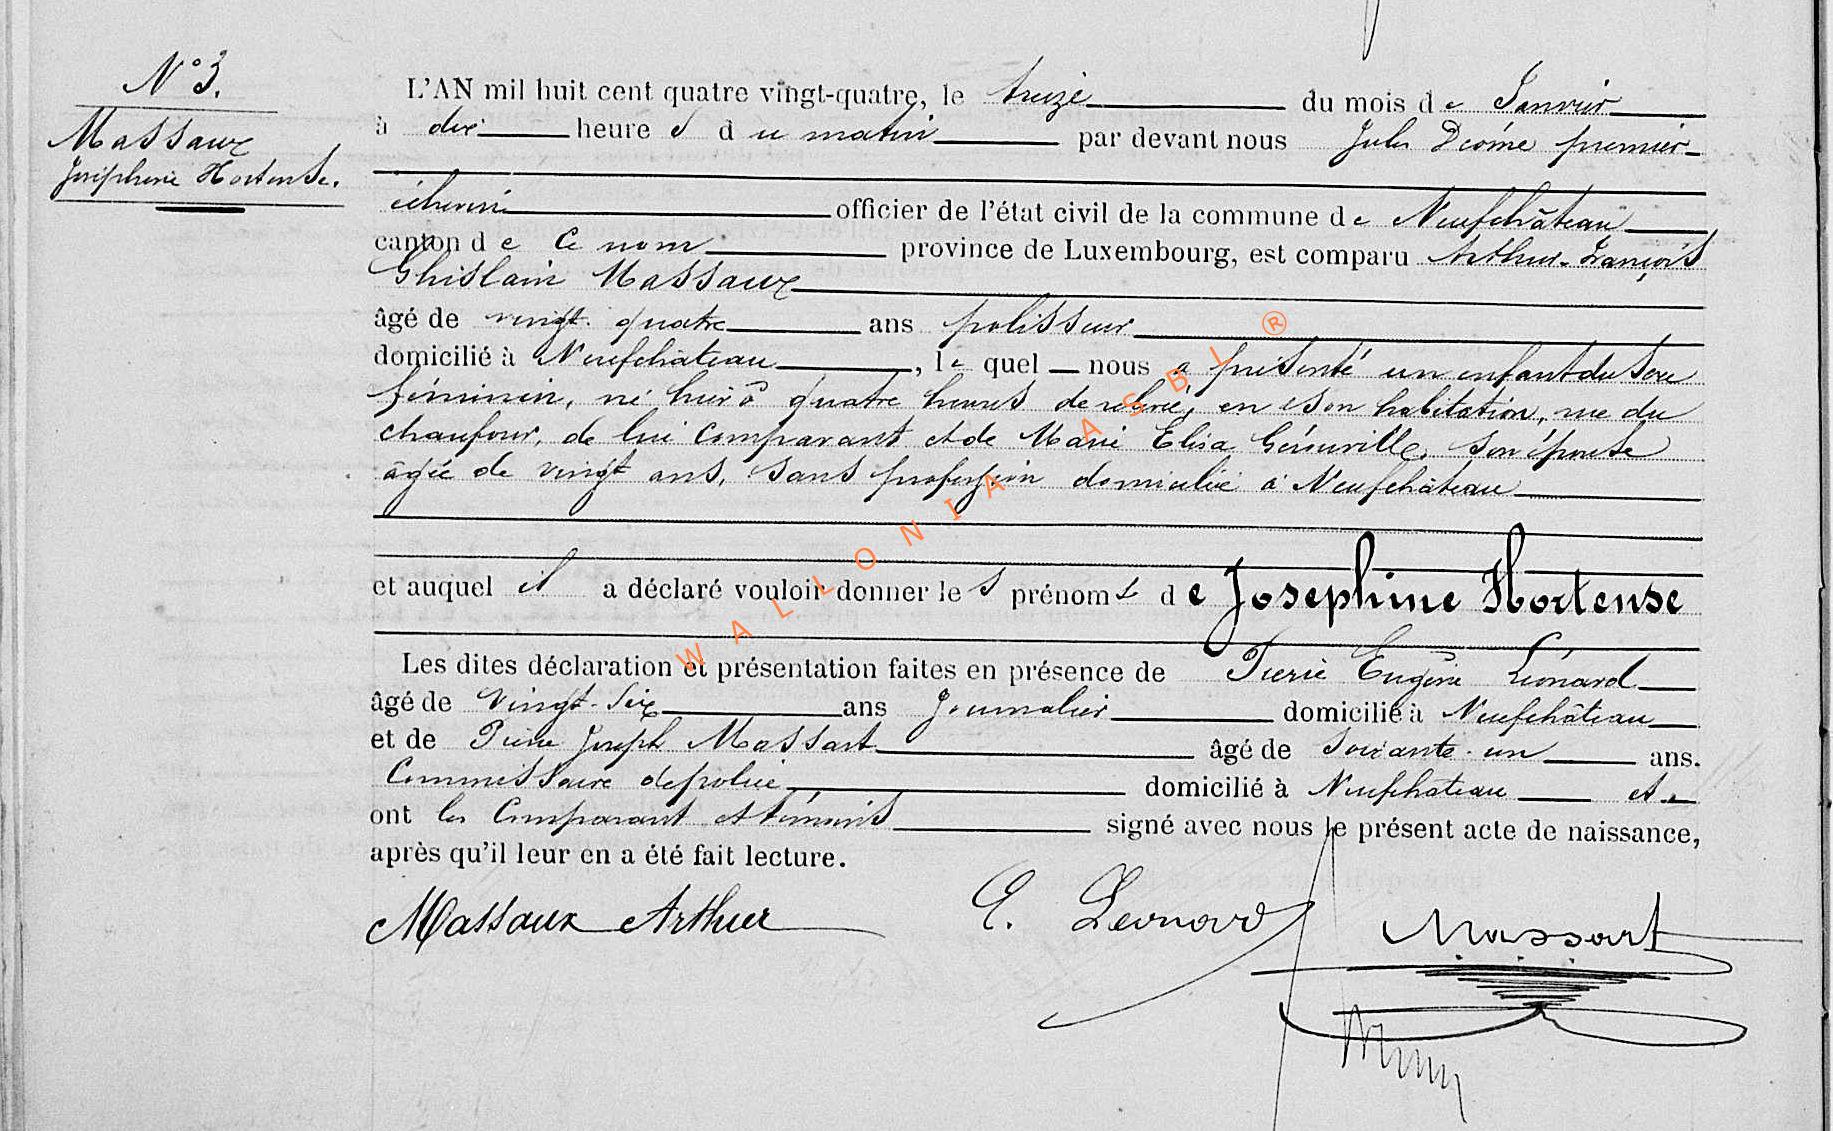 N° 3.
Massaux
Josephine Hortense.
L'AN mil huit cent quatre vingt-quatre, le treize du mois de Janvier
à dix heures du matin par devant nous Jules premier
échevin officier de l'état civil de la commune de Neufchâteau
canton de Ce nom province de Luxembourg, est comparu Arthur-François
Ghislain Massaux
âgé de vingt-quatre ans polisseur
domicilié à Neufchâteau, lequel nous a présenté un enfant du sexe
féminin, né hier à quatre heures de relevée, en son habitation, rue du
chaufour, de lui comparant et de Marie Elisa son épouse
âgée de vingt ans, sans profession domiciliée à Neufchâteau
et auquel il a déclaré vouloir donner les prénoms de Josephine Hortense
Les dites déclaration et présentation faites en présence de Pierre Eugène Léonard
âgé de vingt-six ans Journalier domicilié à Neufchâteau
et de Pierre Joseph Massart âgé de soixante-un ans.
Commissaire de police domicilié à Neufchateau et
ont les Comparant et témoins signé avec nous le présent acte de naissance,
après qu'il leur en a été fait lecture.
Massaux Arthur E. Leonard Massart
WALLONIA ASBL ®